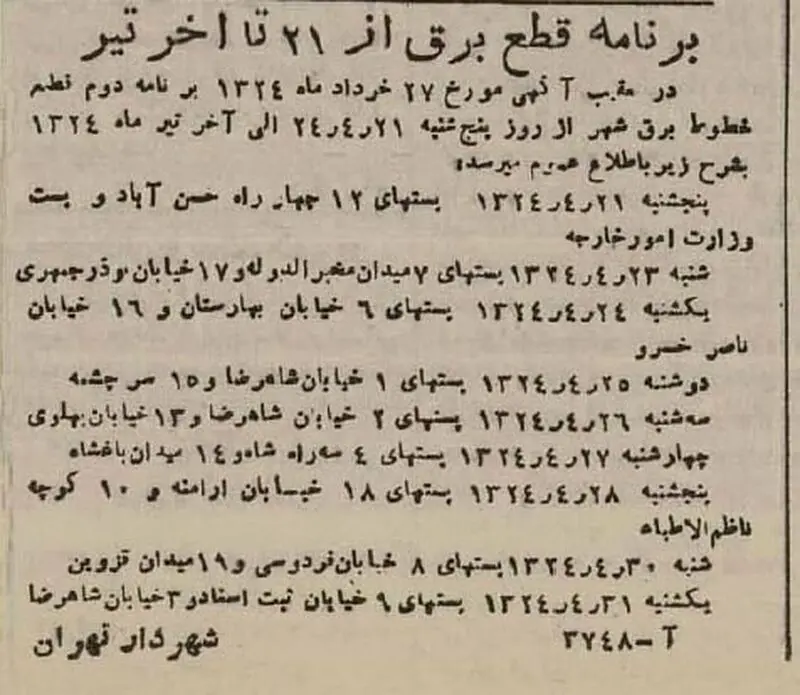 برنامه قطع برق از ۲۱ تا آخر تیر
در عقب آگهی مورخ ۲۷ خرداد ماه ۱۳۲۴ برنامه دوم قطع
خطوط برق شهر از روز پنج‌شنبه ۲۱ر۴ر۲۴ الی آخر تیر ماه ۱۳۲۴
بشرح زیر باطلاع عموم میرسد:
پنجشنبه ۲۱ر۴ر۱۳۲۴ پستهای ۱۲ چهار راه حسن آباد و پست
وزارت امور خارجه
شنبه ۲۳ر۴ر۱۳۲۴ پستهای ۷ میدان مخبرالدوله و ۱۷ خیابان بوذرجمهری
یکشنبه ۲۴ر۴ر۱۳۲۴ پستهای ۶ خیابان بهارستان و ۱۶ خیابان
ناصر خسرو
دوشنبه ۲۵ر۴ر۱۳۲۴ پستهای ۱ خیابان شاهرضا و ۱۵ سر چشمه
سه‌شنبه ۲۶ر۴ر۱۳۲۴ پستهای ۲ خیابان شاهرضا و ۱۳ خیابان پهلوی
چهارشنبه ۲۷ر۴ر۱۳۲۴ پستهای ۴ سه‌راه شاه و ۱۴ میدان باغشاه
پنجشنبه ۲۸ر۴ر۱۳۲۴ پستهای ۱۸ خیابان ارامنه و ۱۰ کوچه
ناظم‌الاطباء
شنبه ۳۰ر۴ر۱۳۲۴ پستهای ۸ خیابان فردوسی و ۱۹ میدان قزوین
یکشنبه ۳۱ر۴ر۱۳۲۴ پستهای ۹ خیابان ثبت اسناد و ۳ خیابان شاهرضا
آ - ۳۷۴۸ شهردار تهران